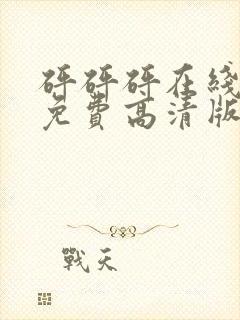 砰砰砰在线
免費高清版
戰天